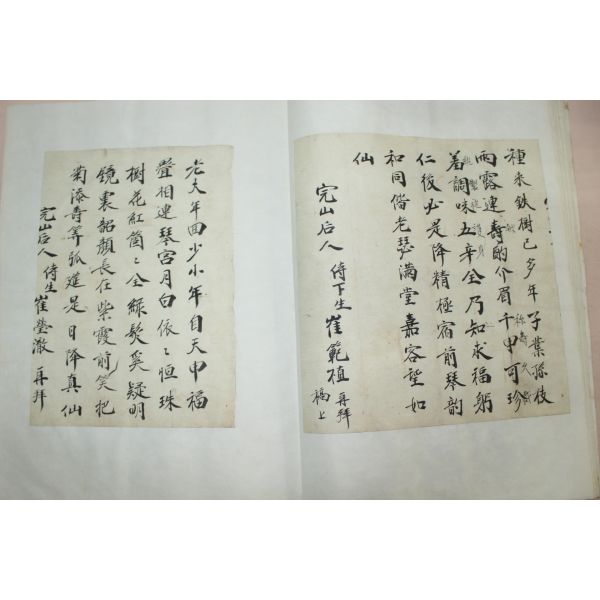 種来鉄樹已多年子葉孫枝
雨露連壽酌介眉千甲可珍
羞調味五辛全乃知求福躬
仁後必是降精極宿前琴韵
和同偕老瑟滿堂嘉容望如
仙
完山后人 侍下生 崔範植 再拜
福上
老大年回少小年自天申福
疊相連琴宮月白依〻恒珠
樹花紅箇〻全綠髮奚疑明
鏡裏韶顏長在紫霞前笑把
菊添壽等弧筵是日降真仙
完山后人 侍生 崔瑩澈 再拜